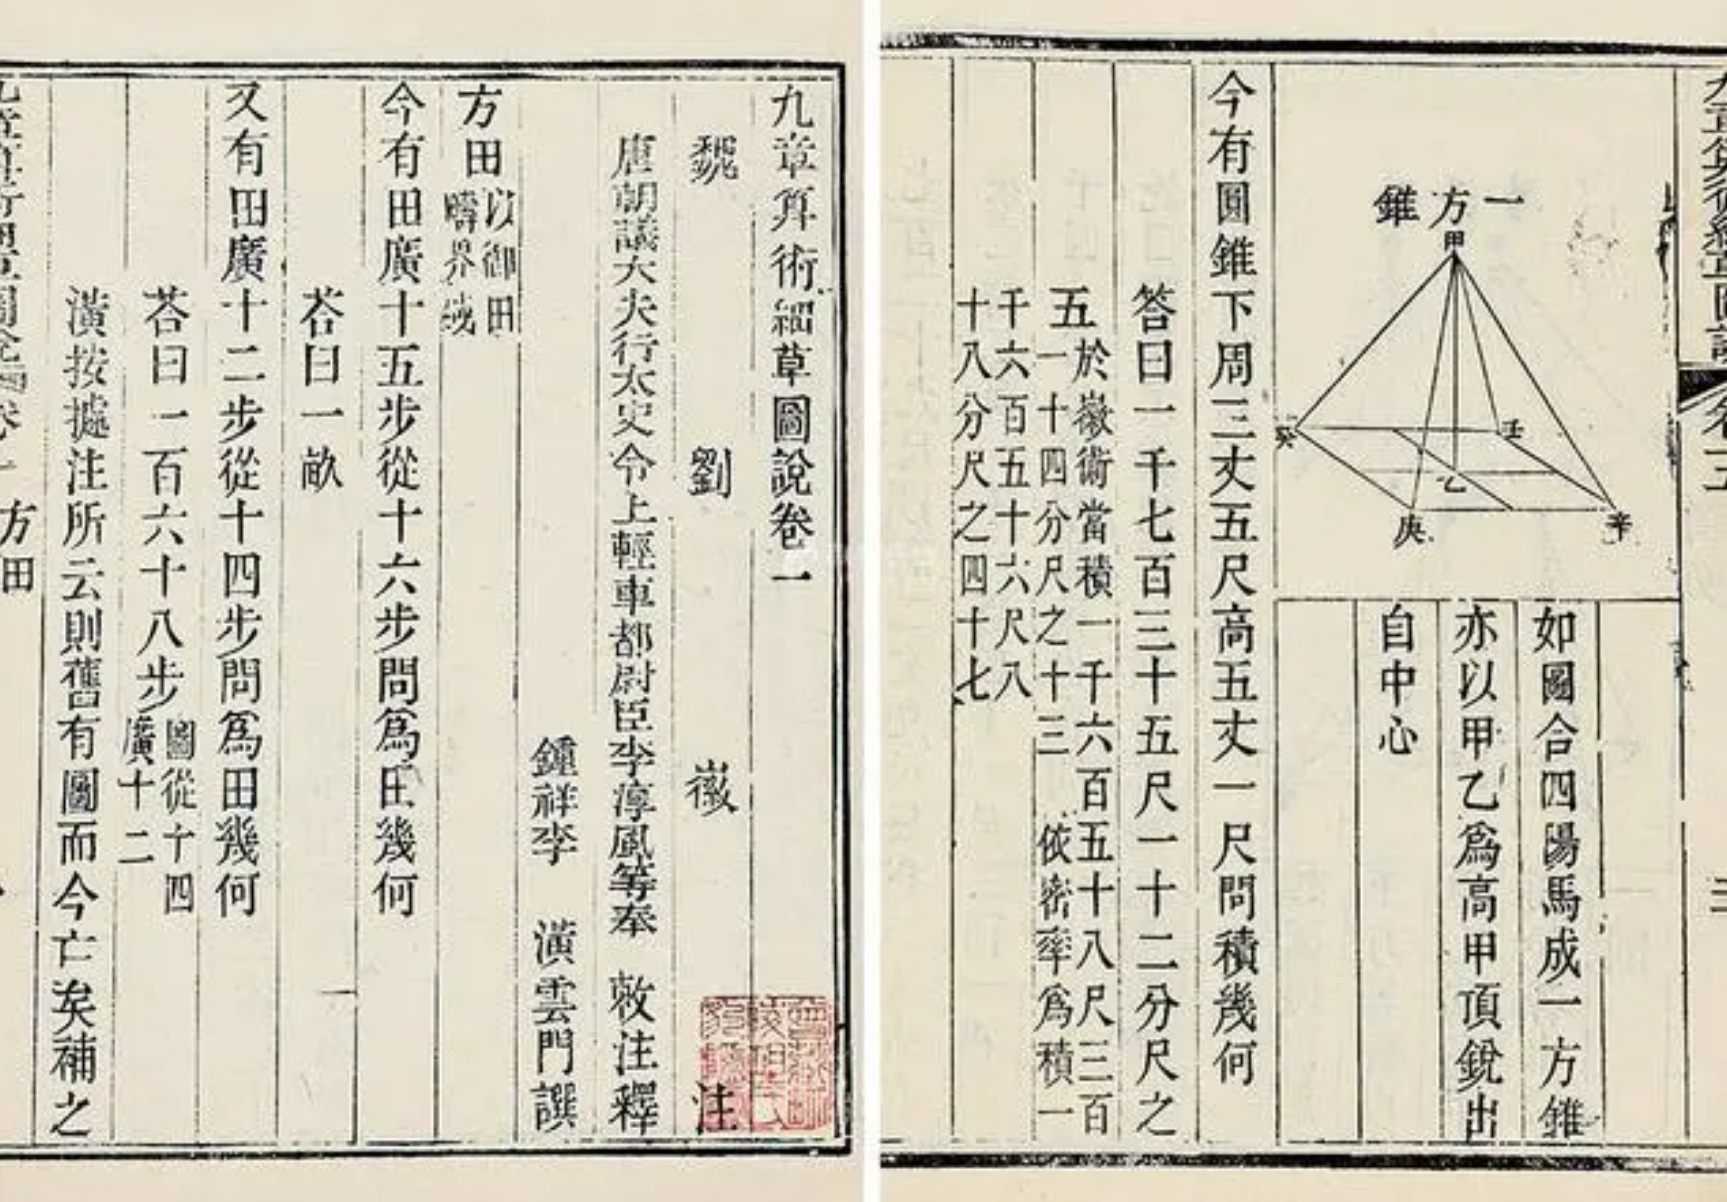 九章算術細草圖說卷一
魏 劉 徽 注
唐朝議大夫行太史令上輕車都尉臣李淳風等奉 敕注釋
鍾祥李 潢雲門譔
方田以御田
疇界域
今有田廣十五步從十六步問爲田幾何
荅曰一畝
又有田廣十二步從十四步問爲田幾何
荅曰一百六十八步圖從十四
廣十二
潢按據注所云則舊有圖而今亡矣補之
方田
一方錐
甲
癸
壬
乙
庚
辛
如圖合四陽馬成一方錐
亦以甲乙爲高甲頂銳出
自中心
今有圓錐下周三丈五尺高五丈一尺問積幾何
答曰一千七百三十五尺一十二分尺之
五於徽術當積一千六百五十八尺三百
一十四分尺之十三 依密率爲積一
千六百五十六尺八
十八分尺之四十七